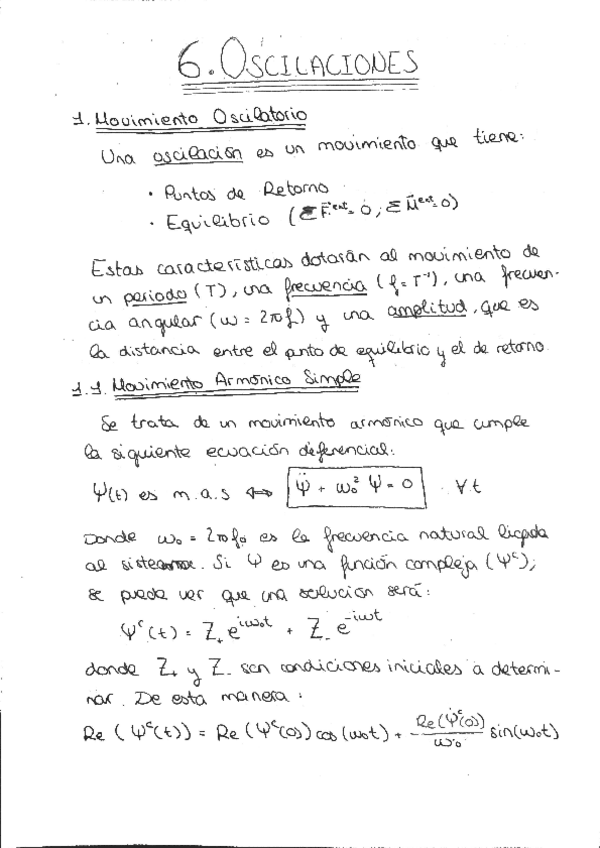 6. OSCILACIONES
1. Movimiento Oscilatorio
Una oscilación es un movimiento que tiene:
· Puntos de Retorno
· Equilibrio (ΣF⃗ᵉˣᵗ = 0; ΣM⃗ᵉˣᵗ = 0)
Estas características dotarán al movimiento de
un periodo (T), una frecuencia (f = T⁻¹), una frecuen-
cia angular (ω = 2πf) y una amplitud, que es
la distancia entre el punto de equilibrio y el de retorno.
1.1. Movimiento Armónico Simple
Se trata de un movimiento armónico que cumple
la siguiente ecuación diferencial:
Ψ(t) es m.a.s ⟺ Ψ̈ + ω₀² Ψ = 0 ∀t
Donde ω₀ = 2πf₀ es la frecuencia natural ligada
al sistema. Si Ψ es una función compleja (Ψᶜ);
se puede ver que una solución será:
Ψᶜ(t) = Z₊ e^{iω₀t} + Z₋ e^{-iωt}
donde Z₊ y Z₋ son condiciones iniciales a determi-
nar. De esta manera:
Re (Ψᶜ(t)) = Re (Ψᶜ(0)) cos(ω₀t) + Re(Ψ̇ᶜ(0))/ω₀ sin(ω₀t)